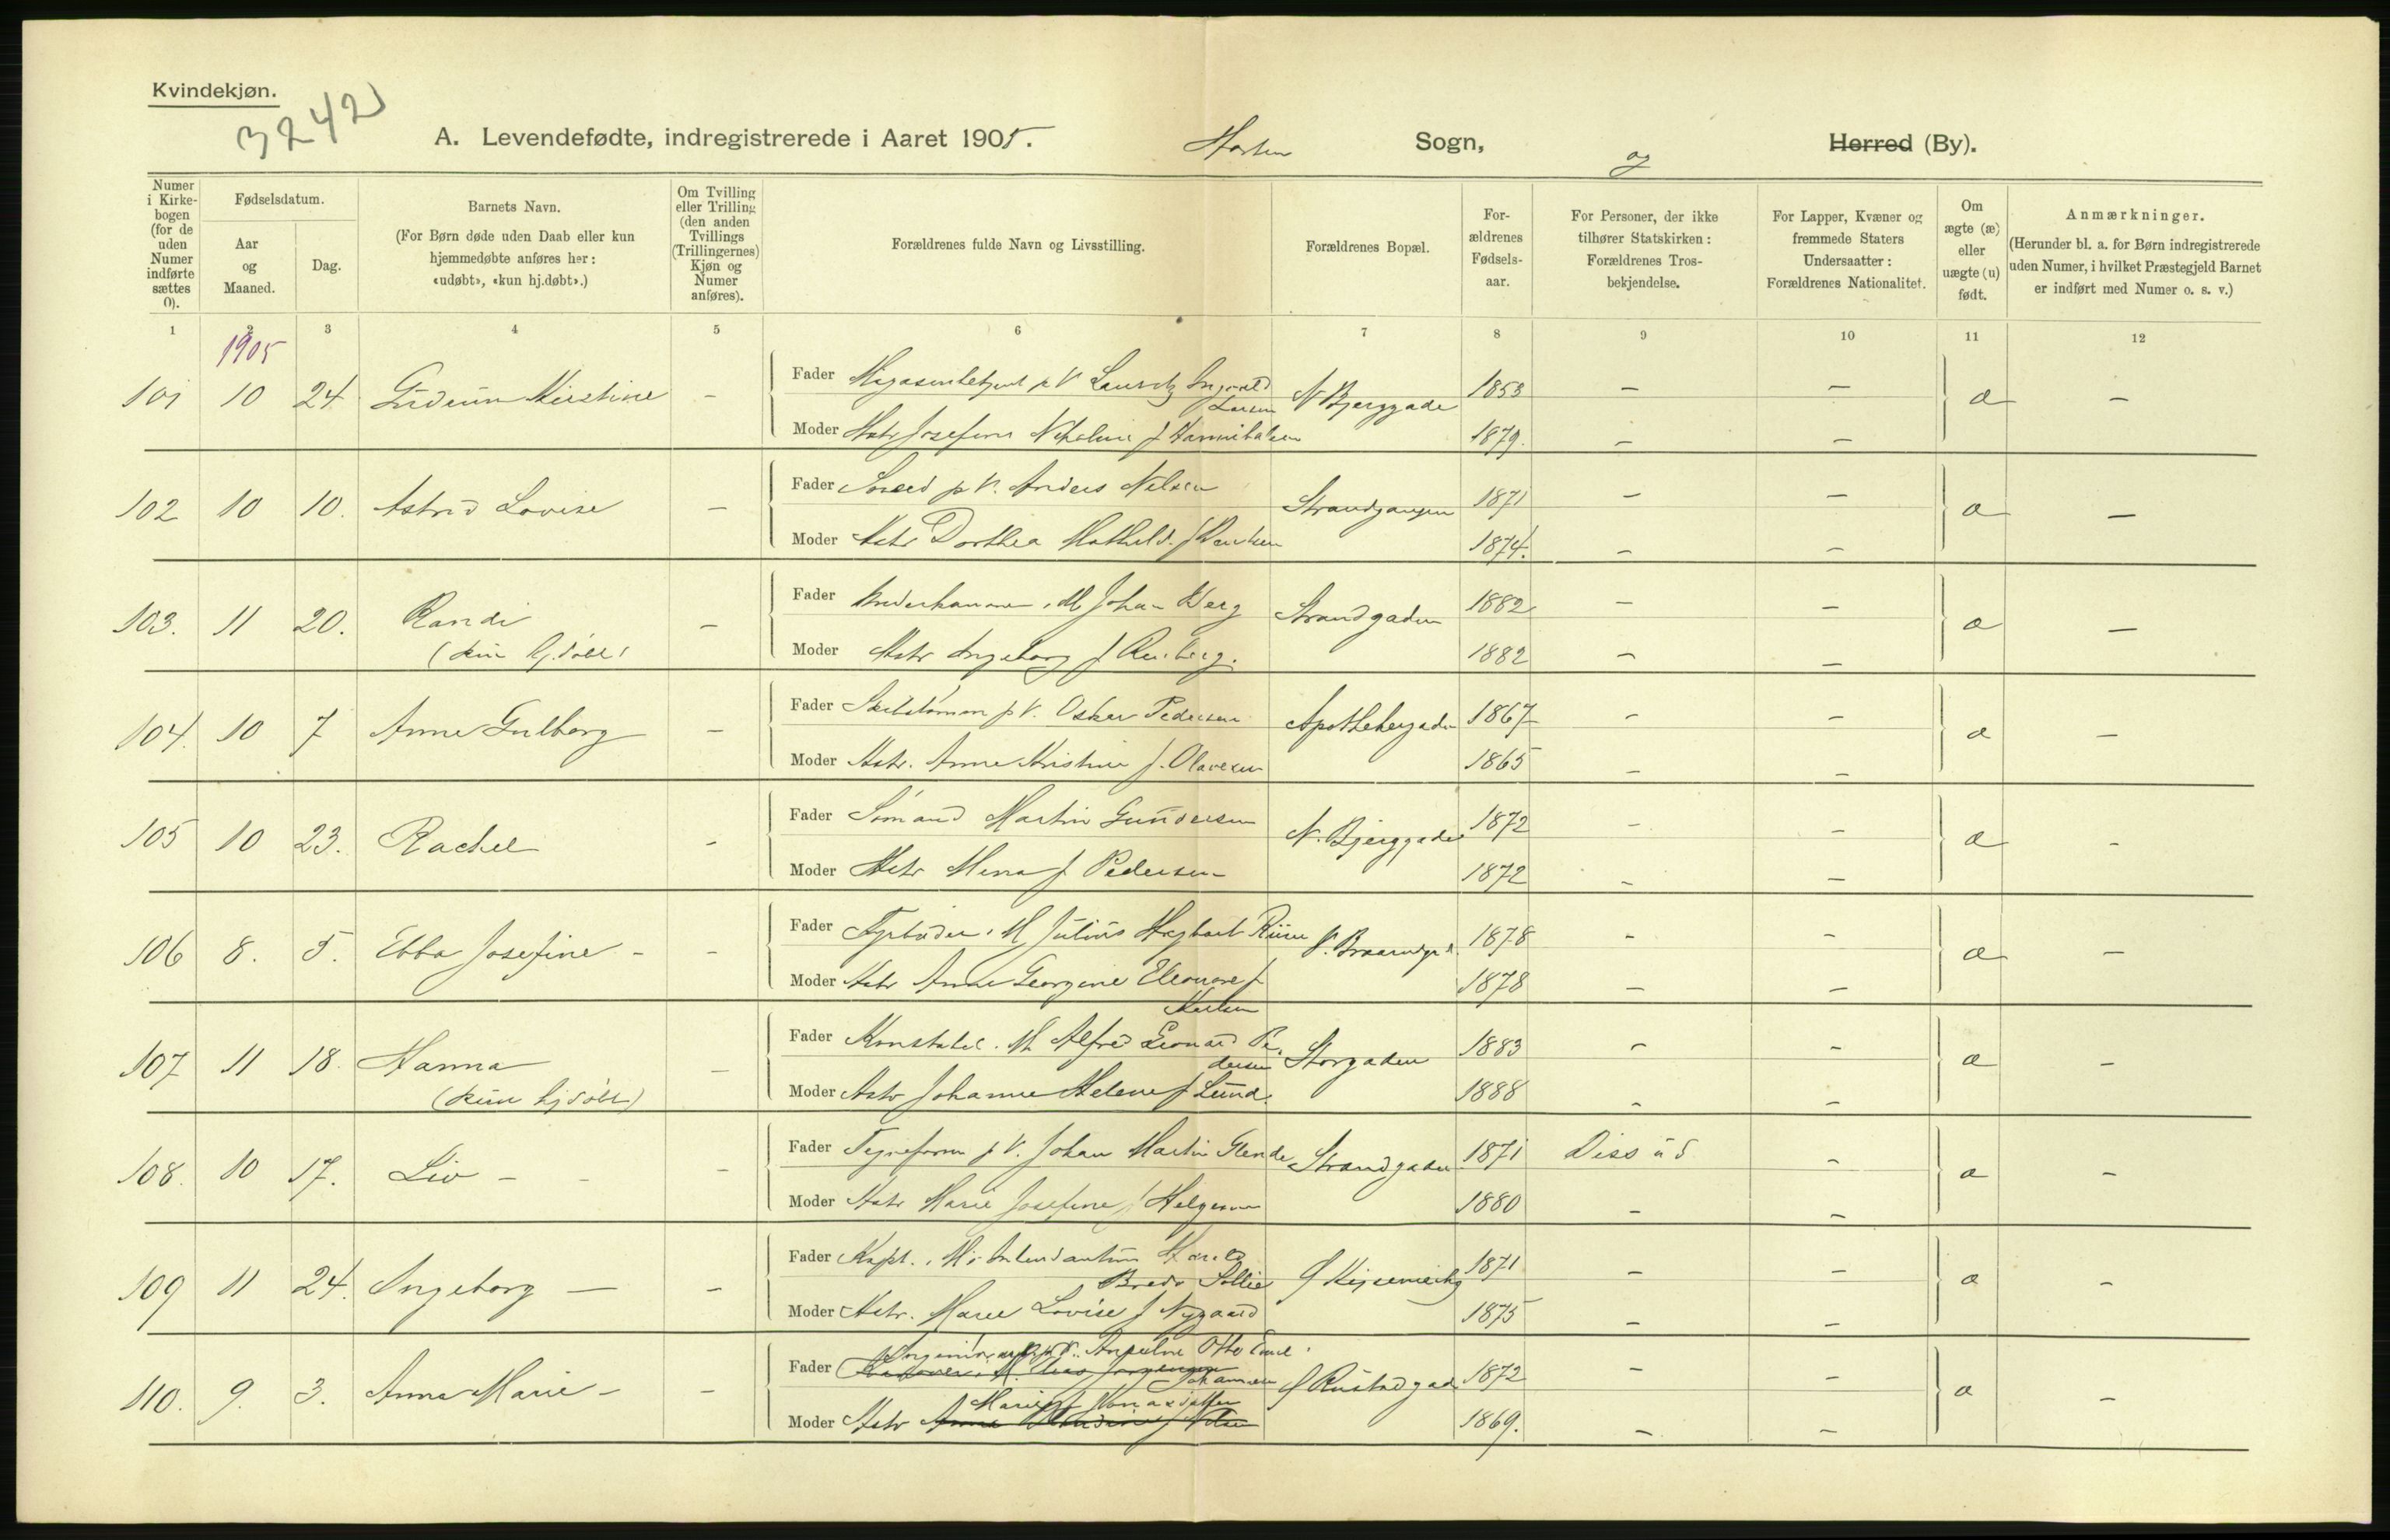 Kvindekjøn.
3242
A. Levendefødte, indregistrerede i Aaret 1905. Horten Sogn, og Herred (By).
Numer i Kirkebogen (for de uden Numer indførte sættes 0).
Fødselsdatum.
Aar og Maaned.
Dag.
Barnets Navn.
(For Børn døde uden Daab eller kun hjemmedøbte anføres her: «udøbt», «kun hj.døbt».)
Om Tvilling eller Trilling (den anden Tvillings (Trillingernes) Kjøn og Numer anføres).
Forældrenes fulde Navn og Livsstilling.
Forældrenes Bopæl.
Forældrenes Fødselsaar.
For Personer, der ikke tilhører Statskirken: Forældrenes Trosbekjendelse.
For Lapper, Kvæner og fremmede Staters Undersaatter: Forældrenes Nationalitet.
Om ægte (æ) eller uægte (u) født.
Anmærkninger.
(Herunder bl. a. for Børn indregistrerede uden Numer, i hvilket Præstegjeld Barnet er indført med Numer o. s. v.)
1 2 3 4 5 6 7 8 9 10 11 12
1905
101 10 24 Gudrun Kirstine - Fader p V Lauritz Ingvald Larsen N Bjerggade 1853 - - æ -
Moder Hstr Josefine Nikoline f Hannibalsen 1879. - -
102 10 10. Astrid Lovise - Fader Smed p V. Anders Nilsen Strandgangen 1871 - - æ -
Moder Hstr Dorthea Mathild. f 1874. - -
103. 11 20. Randi - Fader M Johan Berg Strandgaden 1882 - - æ -
(kun hj.døbt)
Moder Hstr Ingeborg f 1882 - -
104. 10 7 Anna Gulborg - Fader p V. Oskar Pedersen Apothekergaden 1867 - - æ -
Moder Hstr. Anne Kristine f. Olavesen 1865 - -
105 10 23. Rachel - Fader Sømand Martin Gundersen N. Bjerggade 1872 - - æ -
Moder Hstr Mina f Pedersen 1872 - -
106 8. 5. Ebba Josefine - - Fader Fyrbøder i M Julius Hagbart Riise V. Braarudgd. 1878 - - æ -
Moder Hstr Anna Georgine Eleonore f 1878 - -
107 11 18. Hanna - Fader Konstabel i M Alfred Leonard Pedersen Storgaden 1883 - - æ -
(kun hj døbt)
Moder Hstr Johanne Helene f Lund. 1888 - -
108. 10 17. Liv - - - Fader p V. Johan Martin Glende Strandgaden 1871 Diss ud - æ -
Moder Hstr Marie Josefine f Helgesen 1880 - -
109 11 24. Ingeborg - - Fader Kapt. i M's Intendantur Bredo Sollie 1871 - - æ -
Moder Hstr. Marie Lovise f Nygaard 1875 - -
110. 9. 3. Anna Marie - - Fader Ingeniør Otto Emil Johannesen Rustadgad. 1872 - - æ -
Moder Hstr Marie f 1869. - -